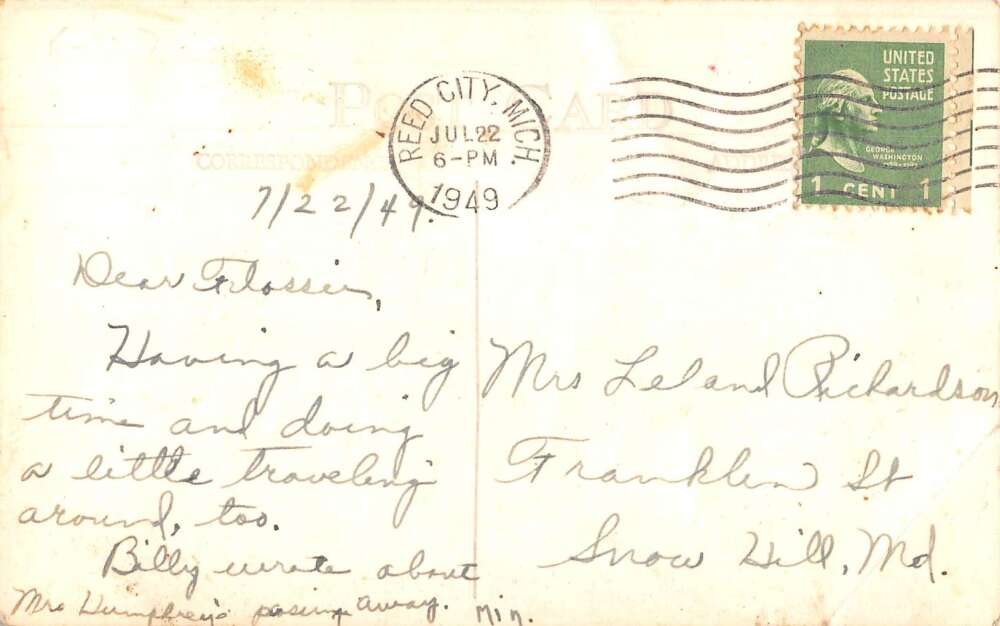 POST CARD
CORRESPONDENCE
ADDRESS
REED CITY, MICH.
JUL 22
6-PM
1949
UNITED
STATES
POSTAGE
GEORGE
WASHINGTON
1 CENT 1
7/22/49.
Dear Flossie,
Having a big
time and doing
a little traveling
around, too.
Billy wrote about
Mrs Humphrey's passing away.
Min.
Mrs Leland Richardson
Franklin St
Snow Hill, Md.